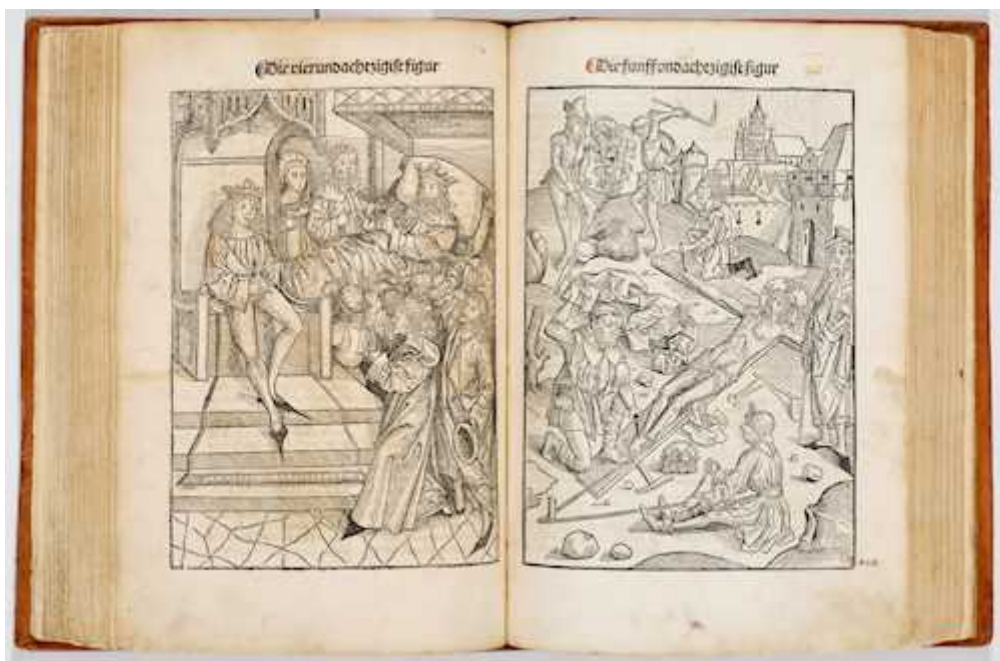 Die vierundachtzigist figur
Die funffondachtzigist figur